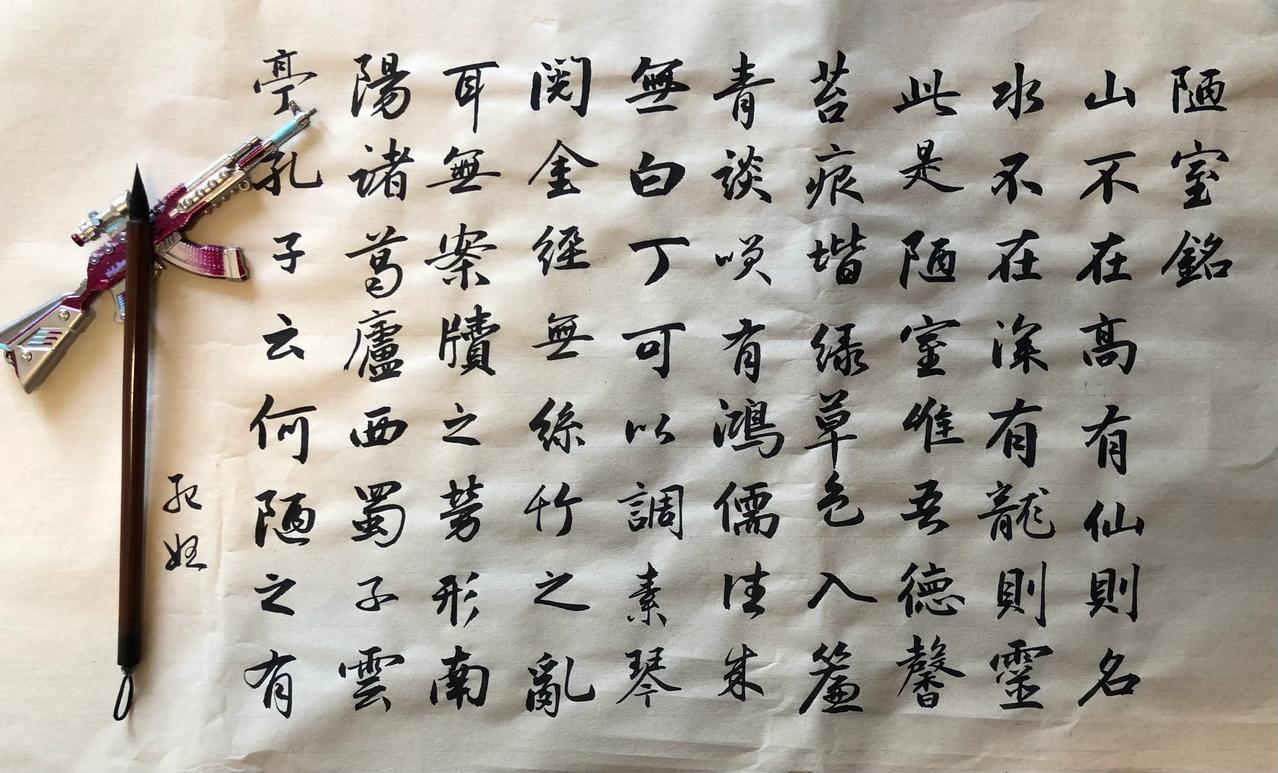 陋室銘
山不在高有仙則名
水不在深有龍則靈
此是陋室惟吾德馨
苔痕堦緑草色入簾
青談咲有鴻儒往来
無白丁可以調素琴
閱金經無絲竹之亂
耳無案牘之劳形南
陽諸葛廬西蜀子雲
亭孔子云何陋之有